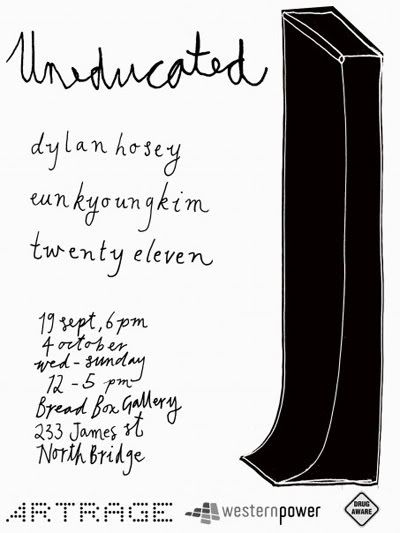 Uneducated
dylan hosey
eunkyoungkim
twenty eleven
19 sept, 6pm
4 october
wed-sunday
12-5 pm
Bread Box Gallery
233 James st
NorthBridge
ARTRAGE
westernpower
DRUG
AWARE